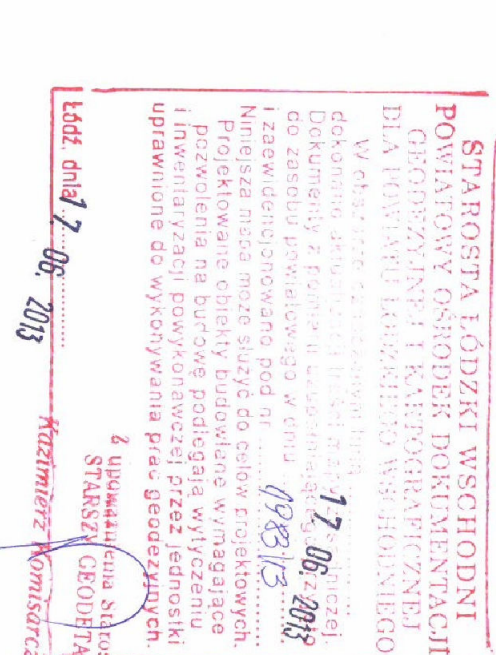 STAROSTA ŁÓDZKI WSCHODNI
POWIATOWY OŚRODEK DOKUMENTACJI
GEODEZYJNEJ I KARTOGRAFICZNEJ
DLA POWIATU ŁÓDZKIEGO WSCHODNIEGO
W obszarze
dokonano aktualizacji
Dokumenty z pomiaru
do zasobu powiatowego w dniu 17. 06. 2013
i zaewidencjonowano pod nr 1983/13
Niniejsza mapa może służyć do celów projektowych.
Projektowane obiekty budowlane wymagające
pozwolenia na budowę podlegają wytyczeniu
i inwentaryzacji powykonawczej przez jednostki
uprawnione do wykonywania prac geodezyjnych.
Łódź, dnia 17. 06. 2013
z upoważnienia Staros
STARSZY GEODETA
Kazimierz Komisarcz